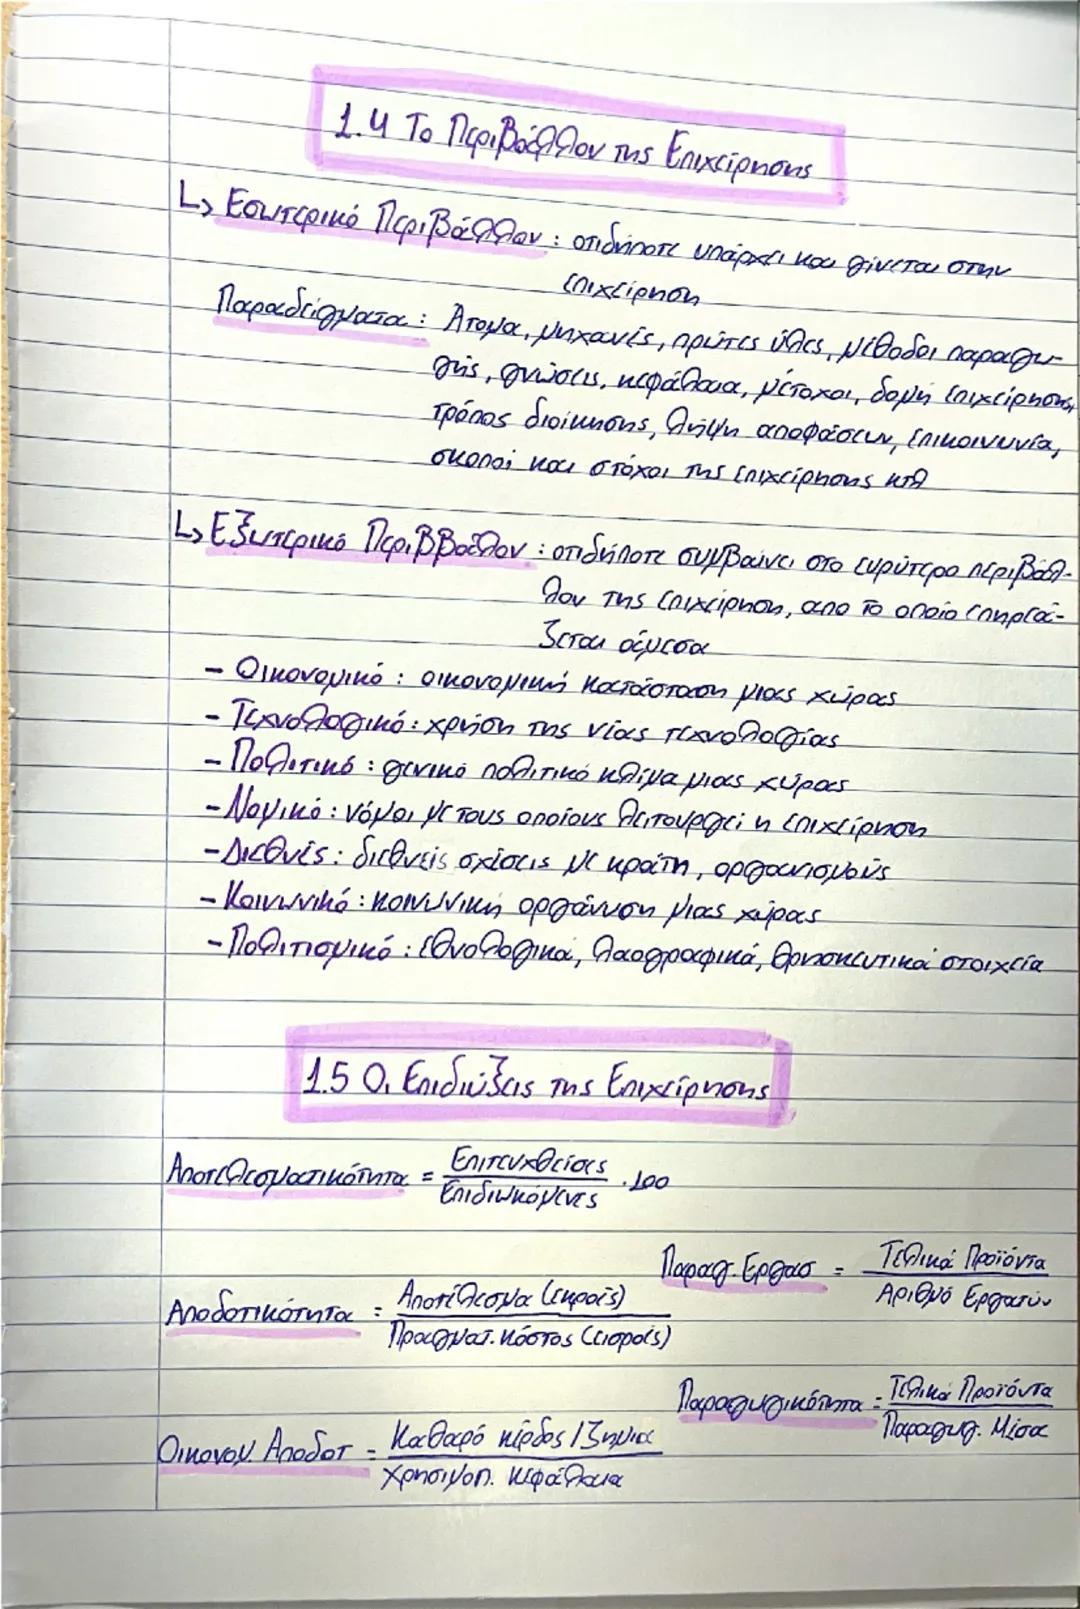 1.4 Το Περιβάλλον της Επιχείρησης
↳ Εσωτερικό Περιβάλλον : οτιδήποτε υπάρχει και γίνεται στην
επιχείρηση
Παραδείγματα : Άτομα, μηχανές, πρώτες ύλες, μέθοδοι παραγω-
γής, γνώσεις, κεφάλαια, μέτοχοι, δομή επιχείρησης,
τρόπος διοίκησης, λήψη αποφάσεων, επικοινωνία,
σκοποί και στόχοι της επιχείρησης κτλ
↳ Εξωτερικό Περιββάλλον : οτιδήποτε συμβαίνει στο ευρύτερο περιβάλ-
λον της επιχείρηση, απο το οποίο επηρεά-
ζεται άμεσα
- Οικονομικό : οικονομική κατάσταση μιας χώρας
- Τεχνολογικό : χρήση της νέας τεχνολογίας
- Πολιτικό : γενικό πολιτικό κλίμα μιας χώρας
- Νομικό : νόμοι με τους οποίους λειτουργεί η επιχείρηση
- Διεθνές : διεθνείς σχέσεις με κράτη, οργανισμούς
- Κοινωνικό : κοινωνική οργάνωση μιας χώρας
- Πολιτισμικό : εθνολογικά, λαογραφικά, θρησκευτικά στοιχεία
1.5 Οι Επιδιώξεις της Επιχείρησης
Αποτελεσματικότητα = Επιτευχθείσες / Επιδιωκόμενες · 100
Παραγ. Εργασ = Τελικά Προϊόντα / Αριθμό Εργατών
Αποδοτικότητα = Αποτέλεσμα (εκροές) / Πραγματ. κόστος (εισροές)
Παραγωγικότητα = Τελικά Προϊόντα / Παραγωγ. Μέσα
Οικονομ. Αποδοτ = Καθαρό κέρδος / Ζημιά / Χρησιμοπ. κεφάλαια